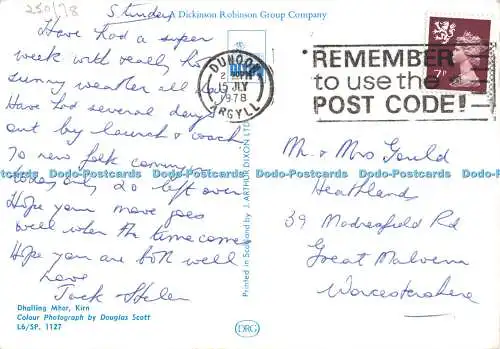 250/78
Sunday
A Dickinson Robinson Group Company
Have had a super
week with really hot
sunny weather all
Have had several days
out by launch & coach
70 new folk coming
today only 20 left over
Hope your move goes
well when the time comes
Hope you are both well
Love
Jack & Helen
Dhalling Mhor, Kirn
Colour Photograph by Douglas Scott
L6/SP. 1127
Printed in Scotland by J. ARTHUR DIXON LTD
DRG
DUNOON
15 JLY
1978
ARGYLL
REMEMBER
to use the
POST CODE!
7P
Mr & Mrs Gould
Heathlands
39 Madresfield Rd
Great Malvern
Worcestershire
Dodo-Postcards Dodo-Postcards Dodo-Postcards Dodo-Postcards Dodo-Postcards Dodo-Postcards